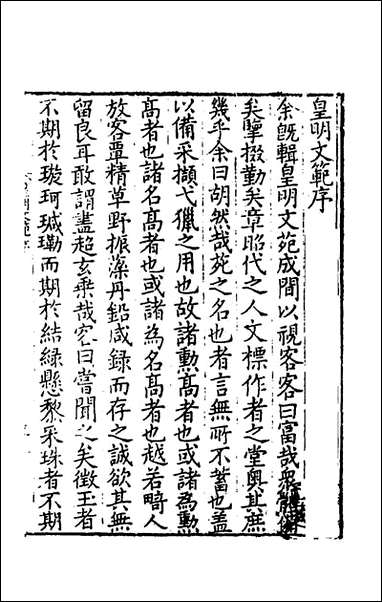 皇明文範序
余旣輯皇明文苑成間以視客客曰富哉衆體備
矣摯掇勤矣章昭代之人文標作者之堂奧其庶
幾乎余曰胡然哉苑之名也者言無所不蓄也蓋
以備采擷弋獵之用也故諸勳高者也或諸為勳
高者也諸名高者也或諸為名高者也越若畸人
放客覃精草野振藻丹鉛咸録而存之誠欲其無
留良耳敢謂盡超玄乗哉客曰嘗聞之矣徵玉者
不期於璇珂瑊玏而期於結緑懸黎采珠者不期